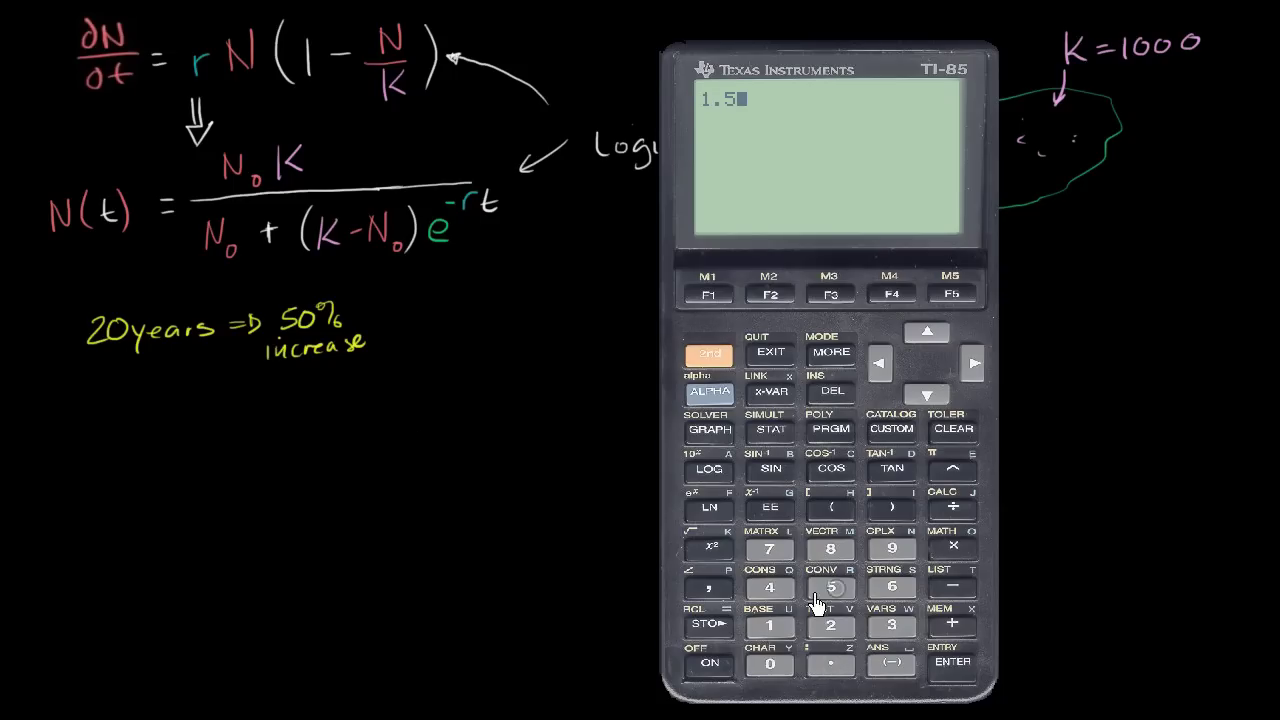 ∂N/∂t = r N (1 - N/K)
⇓
N(t) = N₀K / (N₀ + (K-N₀) e^-rt)
20years => 50%
increase
K = 1000
TEXAS INSTRUMENTS TI-85
1.5
M1 M2 M3 M4 M5
F1 F2 F3 F4 F5
QUIT MODE
2nd EXIT MORE
alpha LINK x INS
ALPHA x-VAR DEL
SOLVER SIMULT POLY CATALOG TOLER
GRAPH STAT PRGM CUSTOM CLEAR
10ˣ A SIN⁻¹ B COS⁻¹ C TAN⁻¹ D π E
LOG SIN COS TAN ^
eˣ F x⁻¹ G [ H ] I CALC J
LN EE ( ) ÷
√ K MATRX L VECTR M CPLX N MATH O
x² 7 8 9 ×
∠ P CONS Q CONV R STRNG S LIST T
, 4 5 6 −
RCL = BASE U V VARS W MEM X
STO► 1 2 3 +
OFF CHAR Y : Z ANS ⎵ ENTRY
ON 0 . (−) ENTER